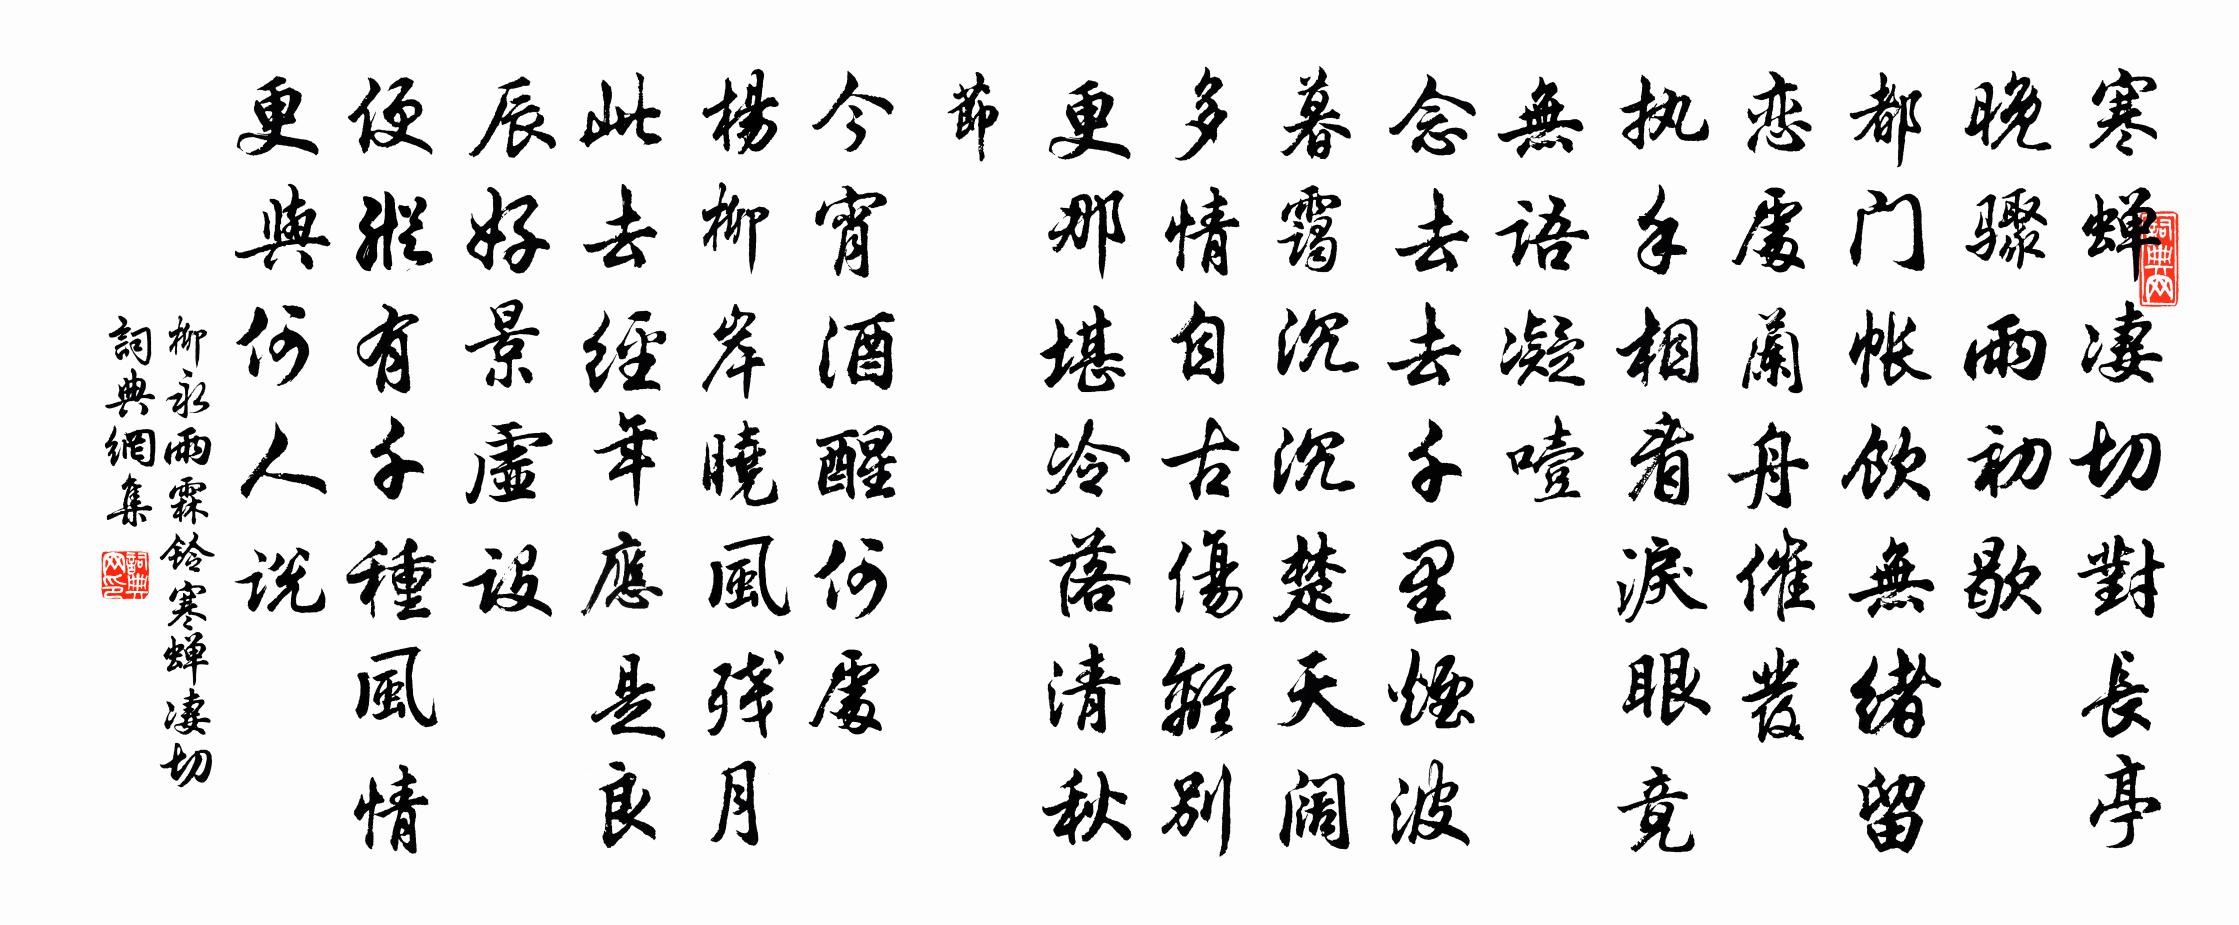 寒蝉凄切對長亭
晚驟雨初歇
都门帐飲無緒留
恋處蘭舟催發
执手相看淚眼竟
無語凝噎
念去去千里煙波
暮靄沉沉楚天阔
多情自古傷離別
更那堪冷落清秋
節
今宵酒醒何處
楊柳岸曉風殘月
此去經年應是良
辰好景虛設
便縱有千種風情
更與何人説
柳永雨霖鈴寒蝉凄切
詞典網集
詞典网
詞典网印